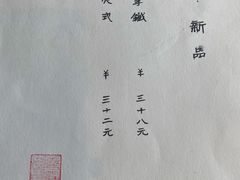 新品
鐵 ¥三十八元
式 ¥三十二元